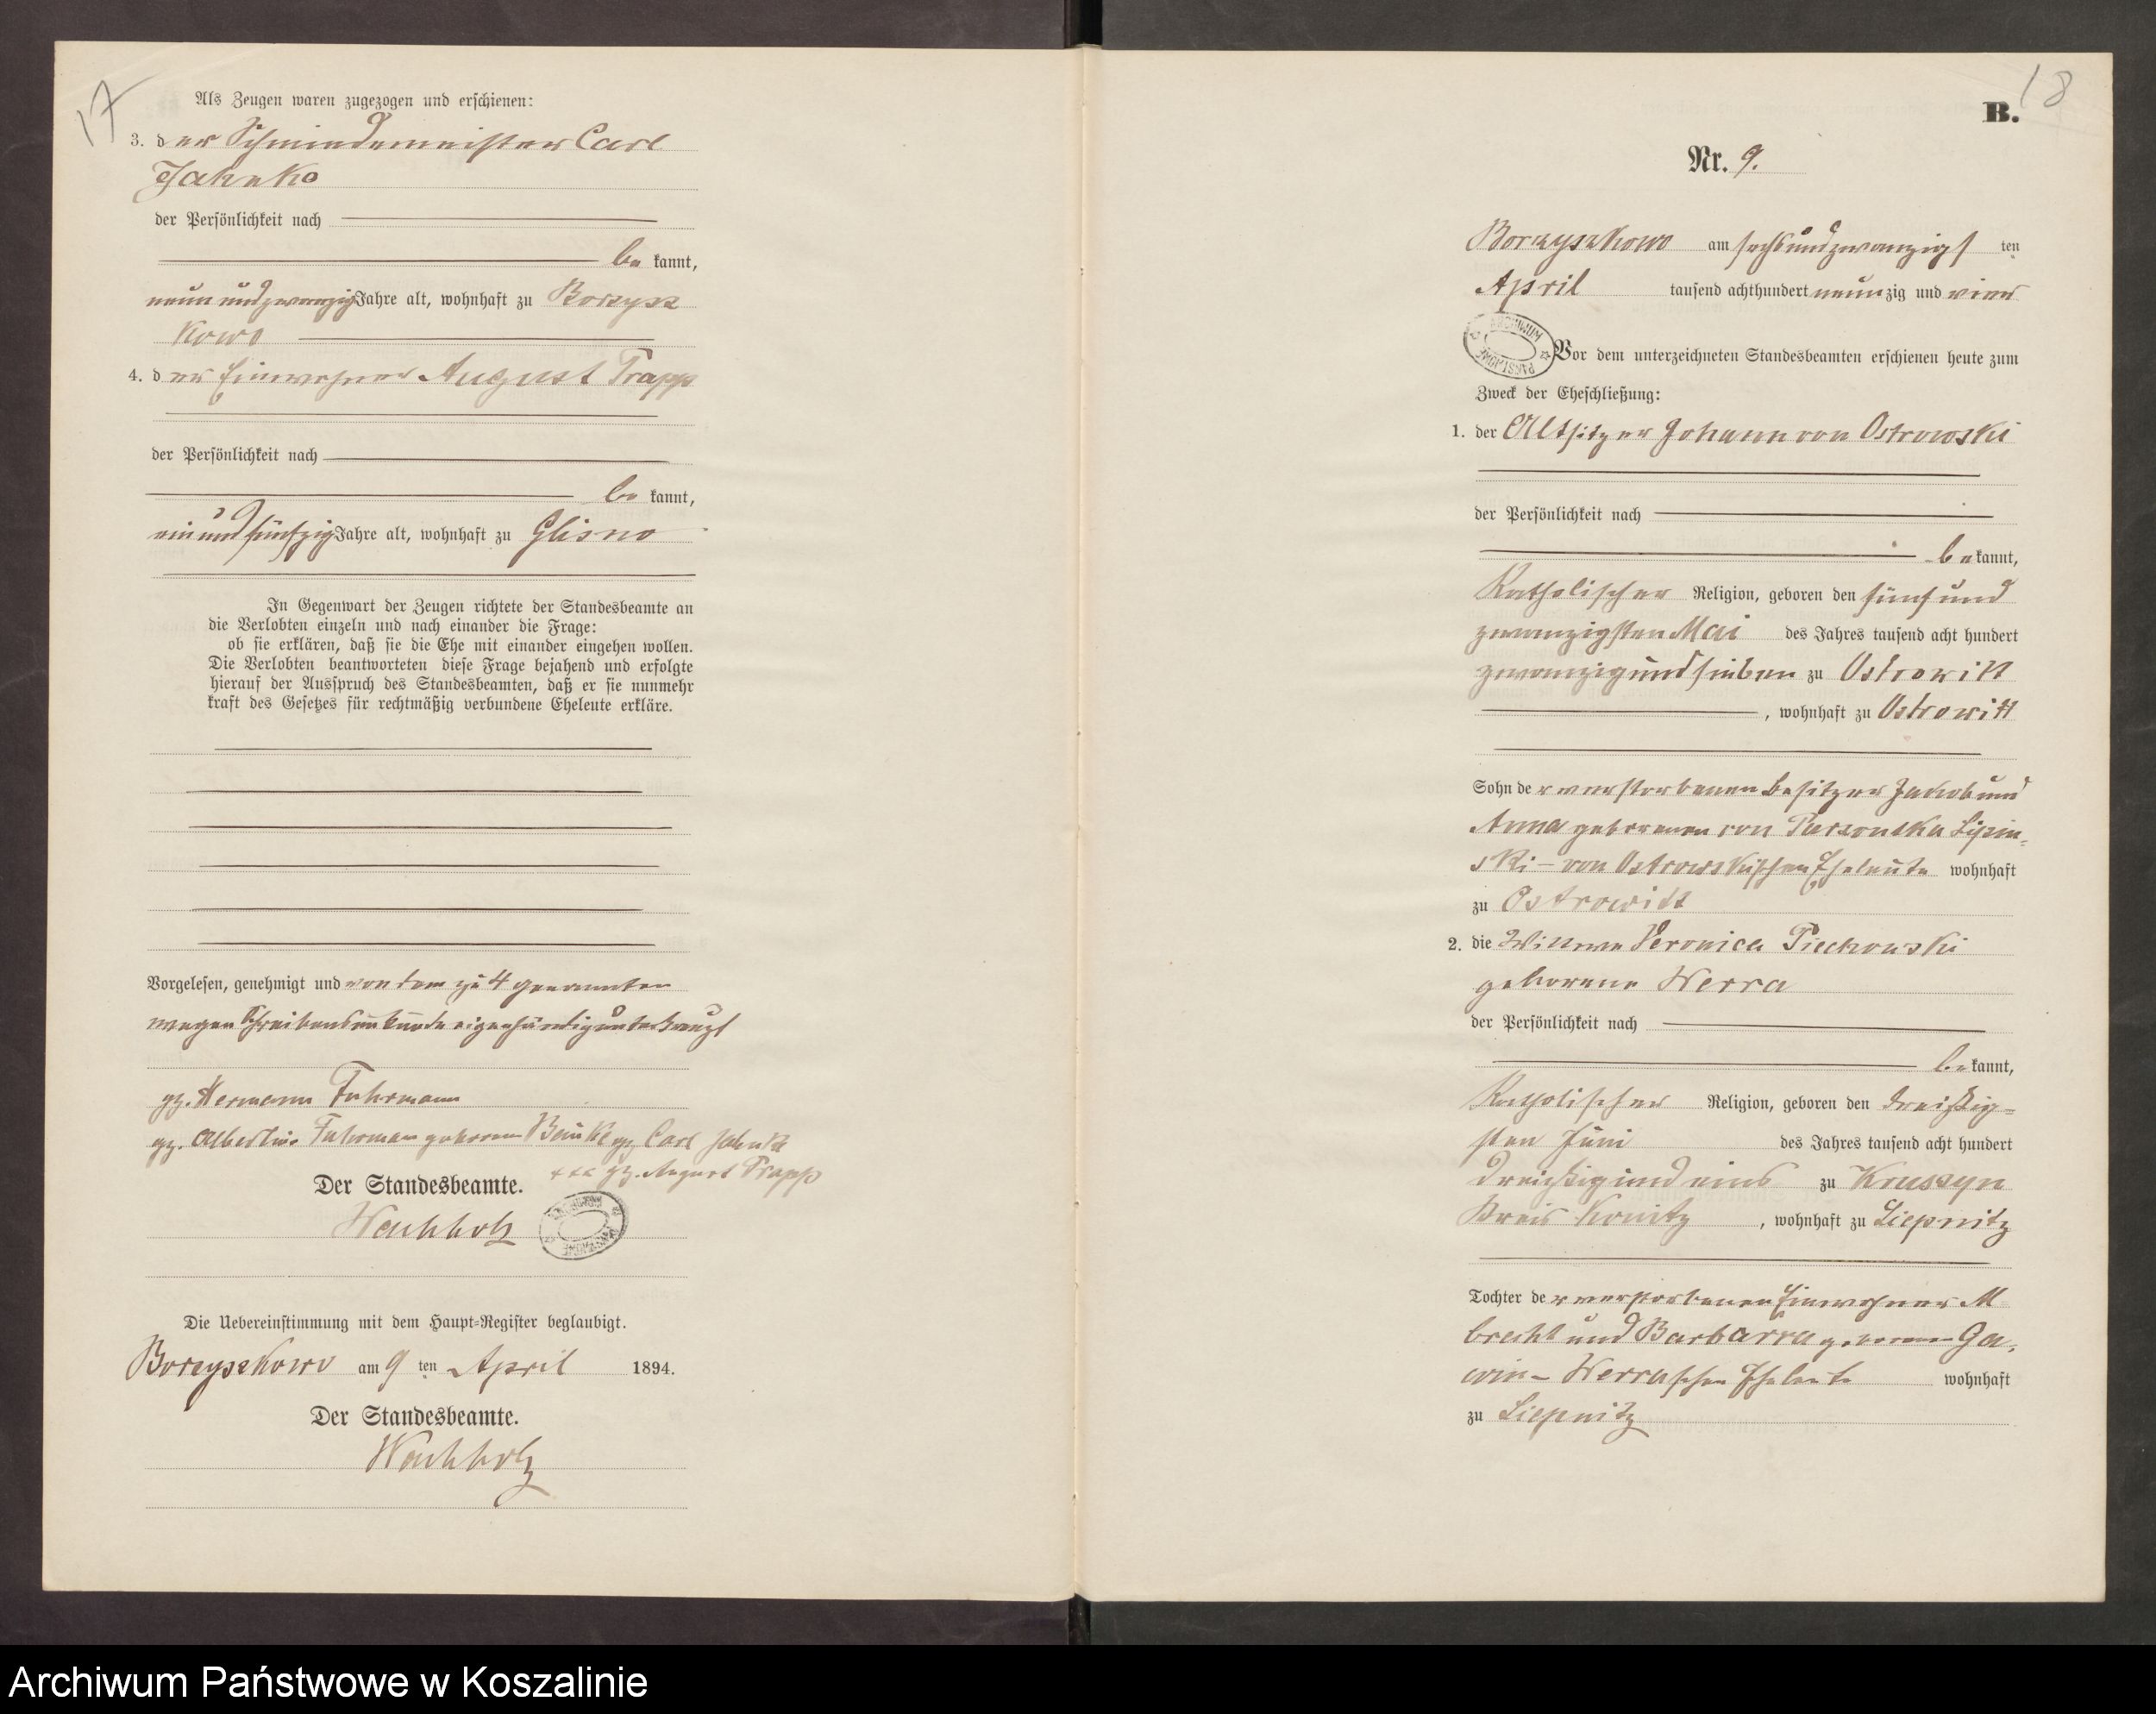 17
Als Zeugen waren zugezogen und erschienen:
3. der Schmiedemeister Carl
Jahnke
der Persönlichkeit nach
be kannt,
neunundzwanzig Jahre alt, wohnhaft zu Borzysz
kowo
4. der Einwohner August Trapp
der Persönlichkeit nach
be kannt,
einundfünfzig Jahre alt, wohnhaft zu Glisno
In Gegenwart der Zeugen richtete der Standesbeamte an
die Verlobten einzeln und nach einander die Frage:
ob sie erklären, daß sie die Ehe mit einander eingehen wollen.
Die Verlobten beantworteten diese Frage bejahend und erfolgte
hierauf der Ausspruch des Standesbeamten, daß er sie nunmehr
kraft des Gesetzes für rechtmäßig verbundene Eheleute erkläre.
Vorgelesen, genehmigt und von dem zu 4 genannten
wegen Schreibensunkunde eigenhändig unterkreuzt
gz. Hermann Fuhrmann
gz. Albertine Fuhrmann geborene gz. Carl Jahnke
+++ gz. August Trapp
Der Standesbeamte.
Wachholz
Die Uebereinstimmung mit dem Haupt-Register beglaubigt.
Borzyszkowo am 9 ten April 1894.
Der Standesbeamte.
Wachholz
18
B.
Nr. 9.
Borzyszkowo am sechsundzwanzigs ten
April tausend achthundert neunzig und vier
ARCHIWUM PAŃSTWOWE
Vor dem unterzeichneten Standesbeamten erschienen heute zum
Zweck der Eheschließung:
1. der Altsitzer Johann von Ostrowski
der Persönlichkeit nach
be kannt,
Katholischer Religion, geboren den fünfund
zwanzigsten Mai des Jahres tausend acht hundert
zwanzig und sieben zu Ostrowitt
, wohnhaft zu Ostrowitt
Sohn der verstorbenen Besitzer Jakob und
Anna geborenen von Lipin-
ski - von Ostrowskischen Eheleute wohnhaft
zu Ostrowitt
2. die Wittwe Veronica Piechowski
geborene Werra
der Persönlichkeit nach
be kannt,
Katholischer Religion, geboren den dreißig-
sten Juni des Jahres tausend acht hundert
dreißig und eins zu Kruszyn
Kreis Konitz , wohnhaft zu Liepnitz
Tochter der verstorbenen Einwohner
und Barbara geborene Ga-
win - Werraschen Eheleute wohnhaft
zu Liepnitz
Archiwum Państwowe w Koszalinie